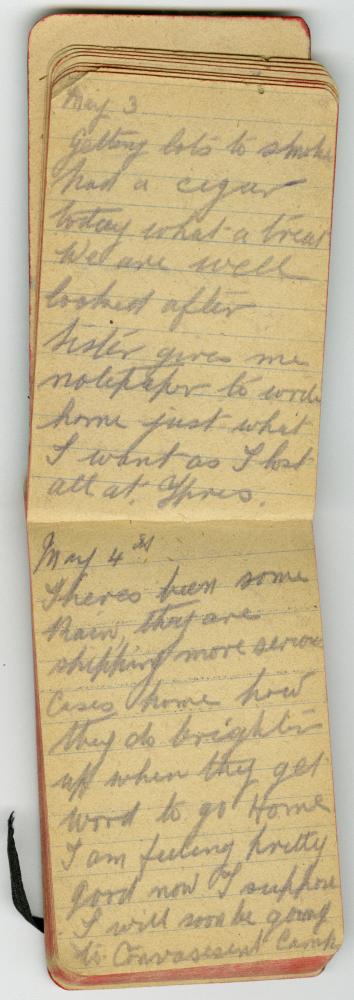 May 3
Getting lots to smoke
had a cigar
today what a treat
We are well
looked after
Sister gives me
notepaper to write
home just what
I want as I lost
all at Ypres.
May 4th
Theres been some
Rain, they are
shipping more serious
Cases home how
they do brighten
up when they get
word to go Home
I am feeling pretty
good now I suppose
I will soon be going
to Convasesent Camp